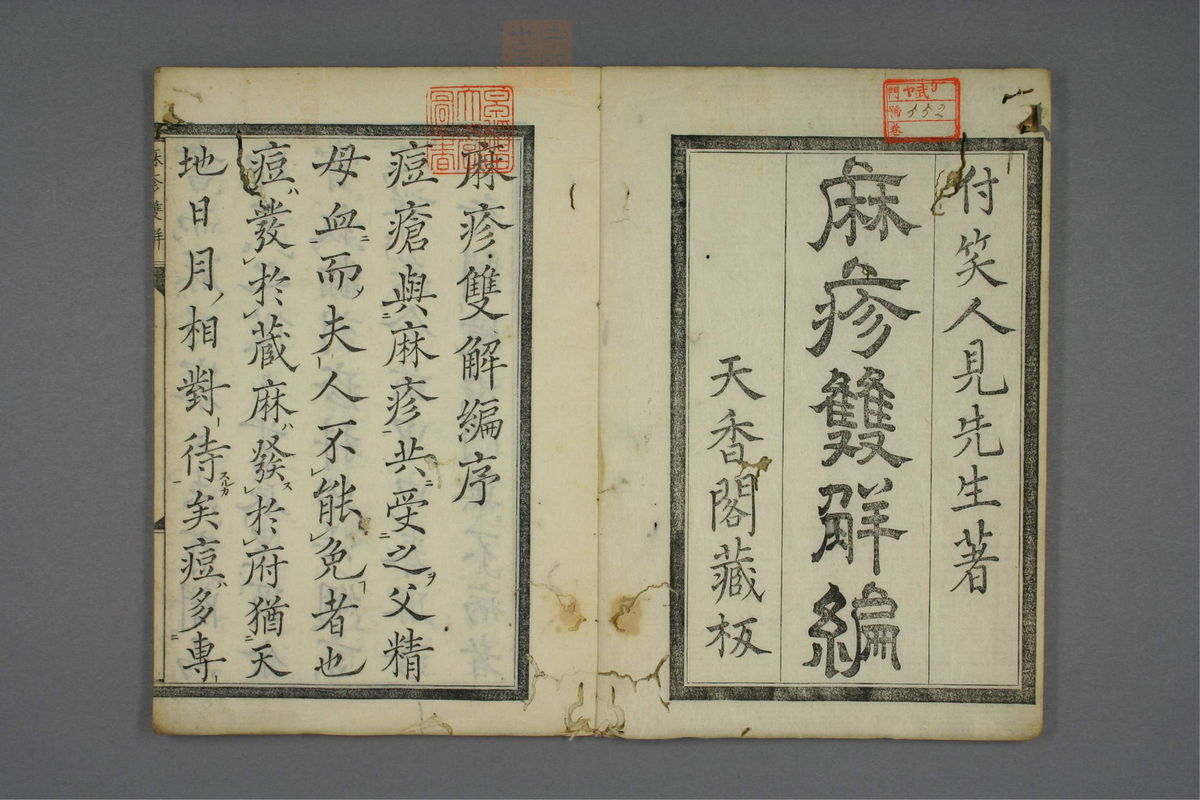 付笑人見先生著
麻疹雙解編
天香閣藏板
麻疹雙解編序
痘瘡與麻疹共受之父精
母血而夫人不能免者也
痘發於蔵麻發於府猶天
地日月相對待矣痘多專